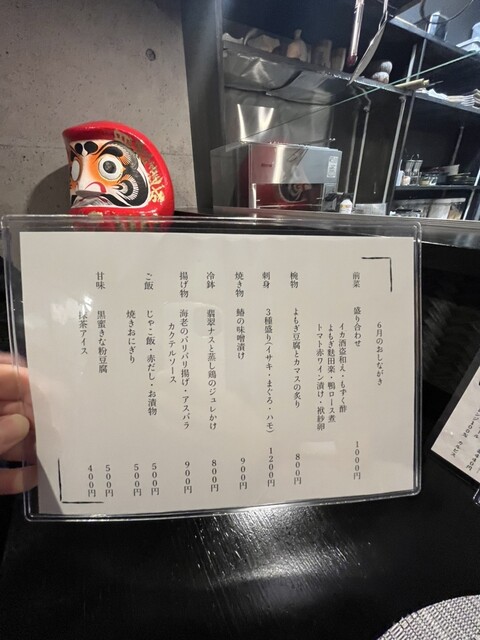 6月のおしながき
前菜 盛り合わせ
イカ酒盗和え・もずく酢
よもぎ麩田楽・鴨ロース煮
トマト赤ワイン漬け・袱紗卵
1000円
椀物 よもぎ豆腐とカマスの炙り 800円
刺身 3種盛り(イサキ・まぐろ・ハモ) 1200円
焼き物 鰆の味噌漬け 900円
冷鉢 翡翠ナスと蒸し鶏のジュレかけ 800円
揚げ物 海老のパリパリ揚げ・アスパラ
カクテルソース 900円
ご飯 じゃこ飯・赤だし・お漬物 500円
焼きおにぎり 500円
甘味 黒蜜きな粉豆腐 500円
抹茶アイス 400円